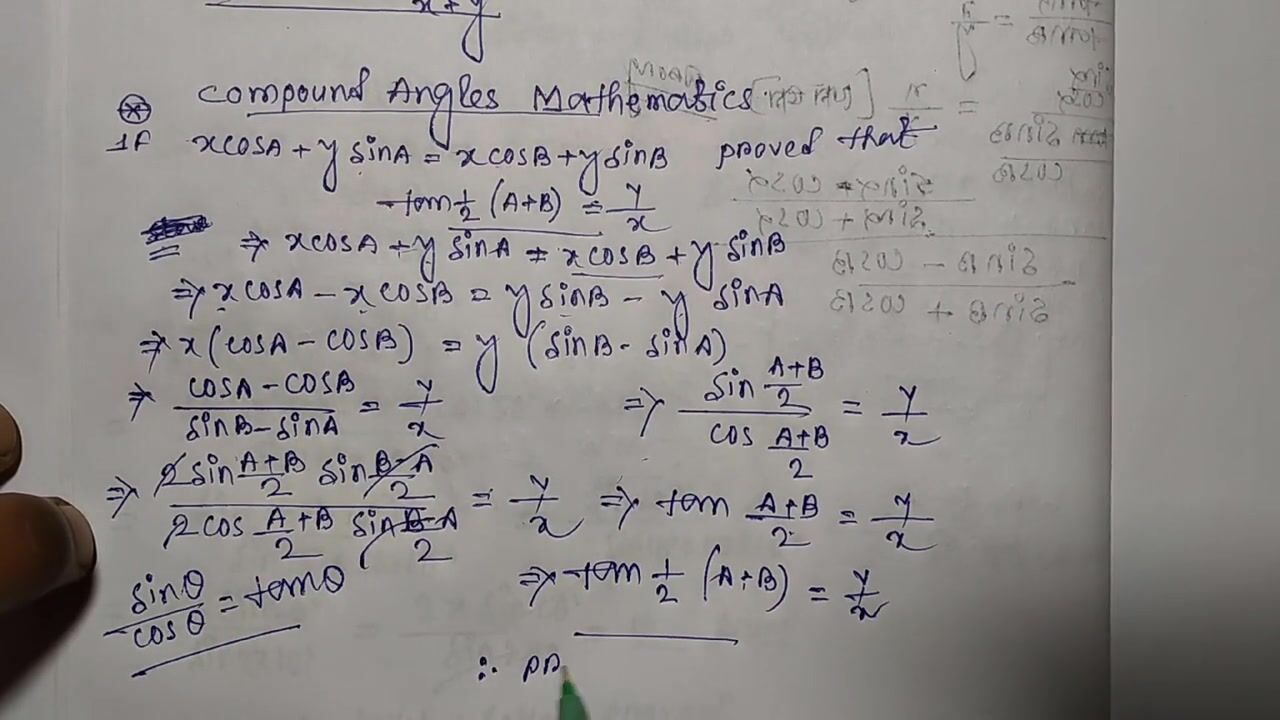 x+y
Compound Angles Mathematics
If x cosA + y sinA = x cosB + y sinB proved that
tan 1/2 (A+B) = y/x
⇒ x cosA + y sinA = x cosB + y sinB
⇒ x cosA - x cosB = y sinB - y sinA
⇒ x (cosA - cosB) = y (sinB - sinA)
⇒ (cosA - cosB)/(sinB - sinA) = y/x
⇒ (2 sin (A+B)/2 sin (B-A)/2)/(2 cos (A+B)/2 sin (B-A)/2) = y/x
sinθ/cosθ = tanθ
⇒ (sin (A+B)/2)/(cos (A+B)/2) = y/x
⇒ tan (A+B)/2 = y/x
⇒ tan 1/2 (A+B) = y/x
∴